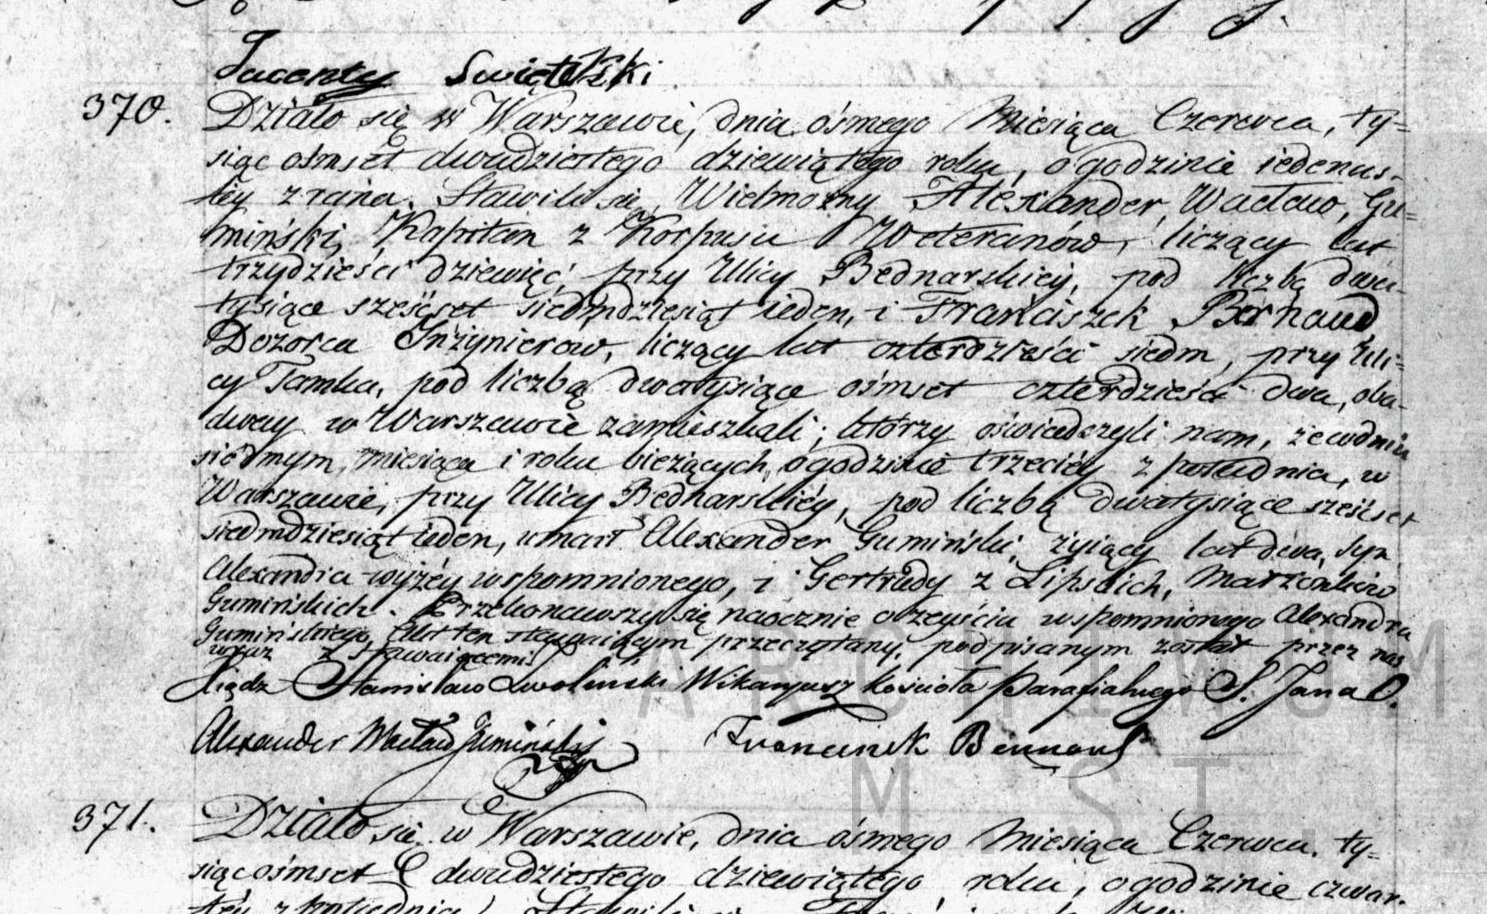 Jacenty Swiątecki
370. Działo się w Warszawie, dnia ósmego Miesiąca Czerwca, ty=
siąc ośmset dwudziestego dziewiątego roku, o godzinie iedenas-
tey z rana. Stawili się, Wielmożny Alexander, Wacław, Gu=
miński, Kapitan z Korpusu Weteranów, liczący lat
trzydzieści dziewięć, przy Ulicy Bednarskiéy, pod liczbą dwa-
tysiące sześćset siedmdziesiąt ieden, i Franciszek Bernaud
Dozorca Inżynierow, liczący lat czterdzieści siedm, przy Uli=
cy Tamka, pod liczbą dwatysiące ośmset czterdzieści dwa, oba-
dway w Warszawie zamieszkali; którzy oświadczyli nam, że w dniu
siódmym, miesiąca i roku bieżących, o godzinie trzeciéy z południa, w
Warszawie, przy Ulicy Bednarskiéy, pod liczbą dwatysiące sześćset
siedmdziesiąt ieden, umarł Alexander Gumiński, żyiący lat dwa, syn
Alexandra wyżéy wspomnionego, i Gertrudy z Lipskich, Małżonków
Gumińskich. Przekonawszy się naocznie o zeyściu wspomnionego Alexandra
Gumińskiego, Akt ten stawaiącym przeczytany, podpisanym został przez nas
wraz z stawaiącemi
Xiądz Stanisław Zwoliński Wikaryusz Kościoła Parafialnego S. Jana
Alexander Wacław Gumiński Franciszek Bernaud
371. Działo się w Warszawie, dnia ósmego Miesiąca Czerwca, ty=
siąc ośmset dwudziestego dziewiątego roku, o godzinie czwar-
téy z południa, Stawili się
ARCHIWUM
M. ST.